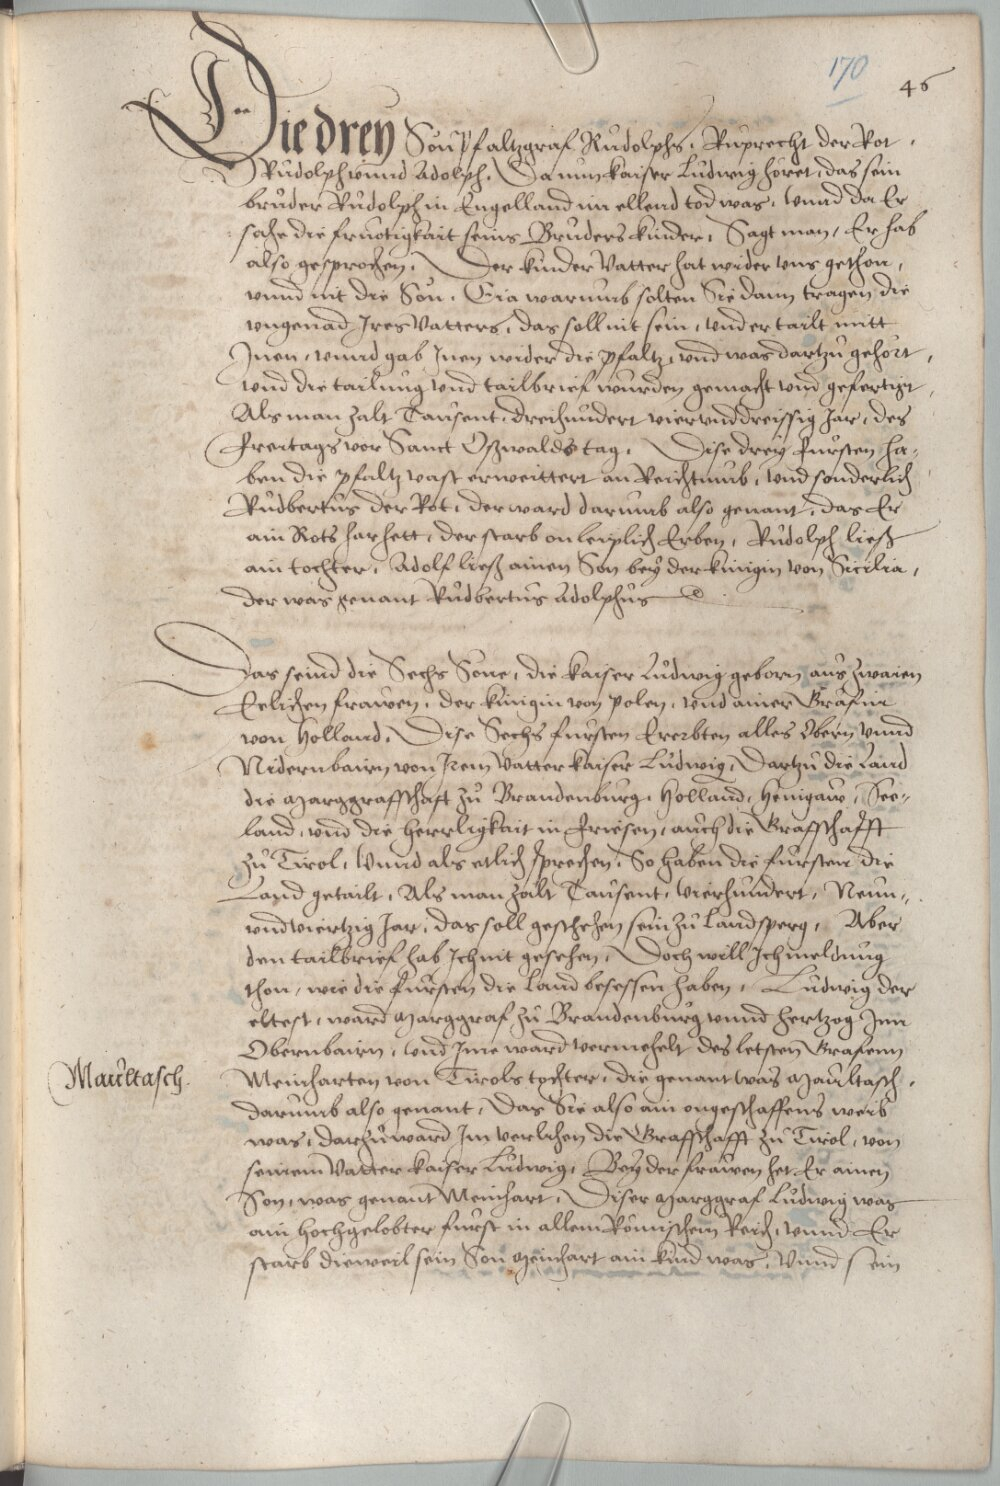 170
46
Die drey Sön Pfaltzgraf Růdolphs, Ruprecht der Rot,
Růdolph vnnd Adolph. Da nun kaiser Lůdwig höret, das sein
brůder Růdolph in Engelland im ellend tod was, vnnd da Er
sahe die fruotigkait seins Brůders kinder, Sagt man, Er hab
also gesprochen, Der kinder Vatter hat wider vns gethon,
vnnd nit die Sön. Eia warumb solten Sie dann tragen die
vngenad Ires Vatters, das soll nit sein, vnd er tailt mitt
Inen, vnnd gab Inen wider die pfaltz, vnd was dartzů gehört,
vnd die tailung vnd tailbrief wurden gemacht vnd gefertigt,
Als man zalt Tausent, dreihundert vier vnd dreissig Jar, des
Freitags vor Sanct Oßwalds tag. Dise drey fürsten ha-
ben die pfaltz vast erweittert an Reichtumb, vnd sonderlich
Růdbertůs der Rot, der ward darumb also genant, das Er
ain Rots har hett, der starb on leiplich Erben, Růdolph ließ
ain tochter, Adolf ließ ainen Son bey der kinigin von Sicilia,
der was genant Růdbertůs Adolphůs
Das seind die Sechs Söne, die kaiser Lůdwig geborn aus zwaien
Eelichen frawen, der kinigin von polen, vnd ainer Gräfin
von Holland. Dise Sechs fürsten Ererbten alles Obern vnnd
Nidern bairn von Irem Vatter kaiser Lůdwig, Dartzů die Land
die Marggraffschaft zů Brandenbůrg, Holland, Henigaw, See-
land, vnd die herrligkait in friesen, auch die Graffschafft
zů Tirol, vnnd als etlich sprechen, So haben die fürsten die
Land getailt, Als man zält Tausent, vierhundert, Neun-
vnd viertzig Jar, das soll geschehen sein zů Landsperg, Aber
den tailbrief hab Ich nit gesehen, Doch will Ich meldung
thon, wie die fürsten die Land besessen haben, Lůdwig der
eltest, ward Marggraf zů Brandenbůrg vnnd hertzog Inn
Obernbairn, vnd Ime ward vermehelt des letsten Grafenn
Meinharten von Tirols tochter, die genant was Maůltasch,
darumb also genant, Das Sie also ain vngeschaffens weib
was, darzů ward Im verlihen die Graffschafft zů Tirol, von
seinem Vatter kaiser Lůdwig, Bey der frawen het Er ainen
Son, was genant Meinhart, Diser Marggraf Lůdwig was
ain hochgelobter fürst in allem Römischem Reich, vnnd Er
starb dieweil sein Son Meinhart ain kind was, Vnnd sein
Maůltasch.